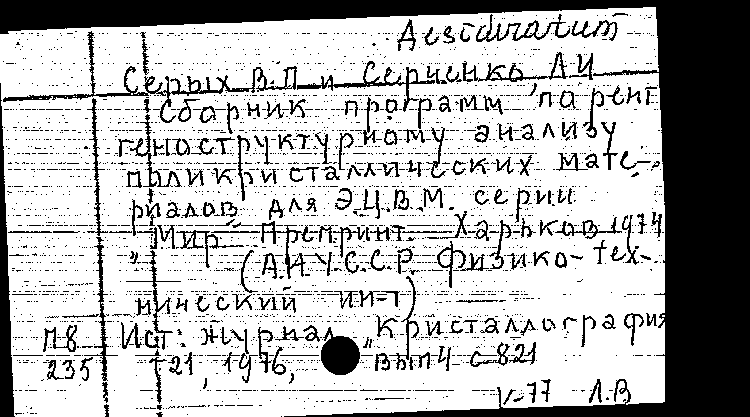 Desideratum
Серых В.П и Сергиенко А И
Сборник программ по рент
геноструктурному анализу
поликристаллических мате-
риалов для Э.Ц.В.М. серии
"Мир" Препринт. Харьков 1974
(А.Н.У.С.С.Р. Физико-тех-
нический ин-т)
П8 Ист: журнал „Кристаллография
235 т21, 1976, вып4 с-821
V-77 Л.В